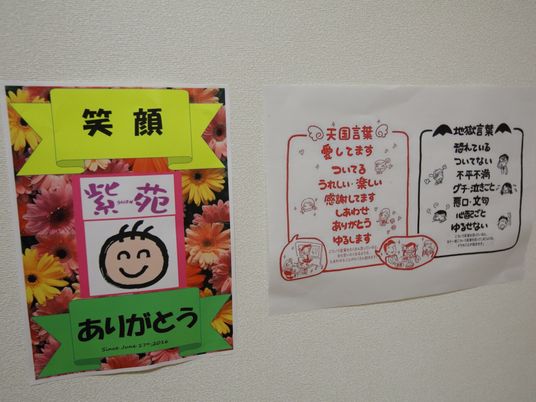 笑顔
紫苑
SHION
ありがとう
Since June 27th,2016
天国言葉
愛してます
ついてる
うれしい・楽しい
感謝してます
しあわせ
ありがとう
ゆるします
地獄言葉
恐れている
ついてない
不平不満
グチ・泣きごと
悪口・文句
心配ごと
ゆるせない